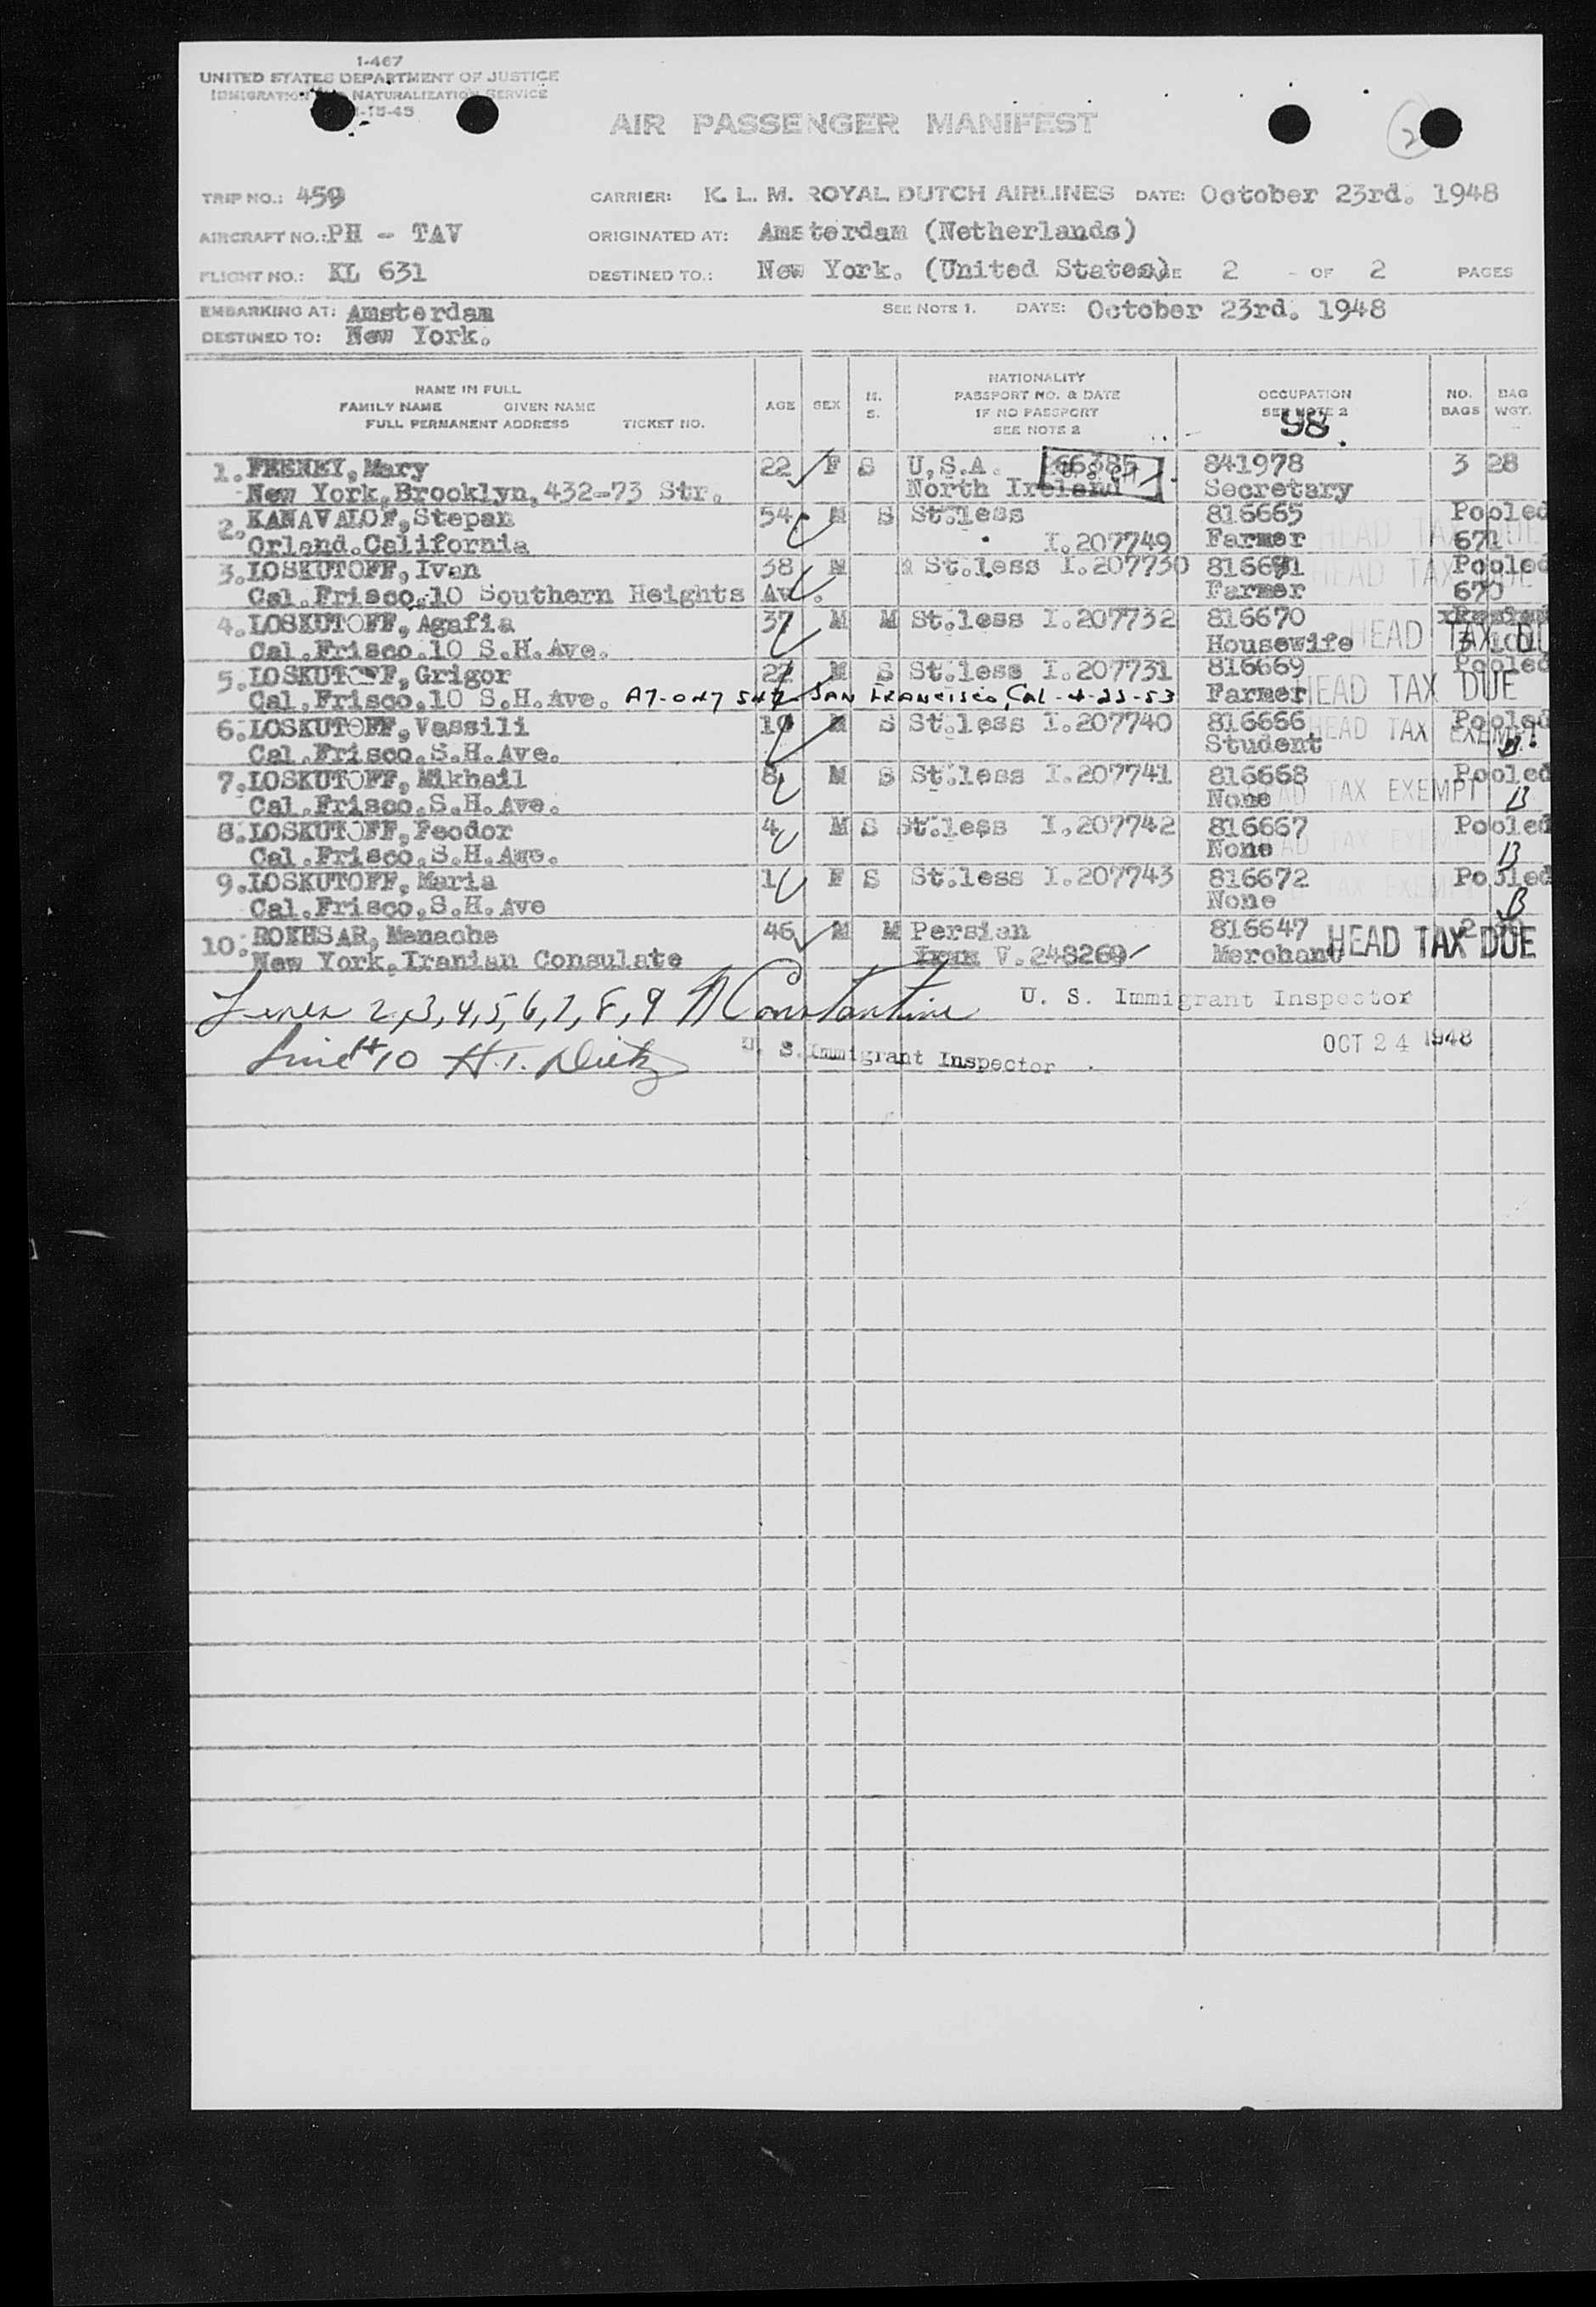 1-467
UNITED STATES DEPARTMENT OF JUSTICE
IMMIGRATION NATURALIZATION SERVICE
-15-45
AIR PASSENGER MANIFEST
2
TRIP NO.: 459 CARRIER: K. L. M. ROYAL DUTCH AIRLINES DATE: October 23rd. 1948
AIRCRAFT NO.: PH - TAV ORIGINATED AT: Amsterdam (Netherlands)
FLIGHT NO.: KL 631 DESTINED TO.: New York. (United States) 2 - OF 2 PAGES
EMBARKING AT: Amsterdam SEE NOTE 1. DATE: October 23rd. 1948
DESTINED TO: New York.
NAME IN FULL
FAMILY NAME GIVEN NAME
FULL PERMANENT ADDRESS TICKET NO.
AGE SEX M. S.
NATIONALITY
PASSPORT NO. & DATE
IF NO PASSPORT
SEE NOTE 2
OCCUPATION
SEE NOTE 2
98
NO. BAGS
BAG WGT.
1. FEENEY, Mary 22 F S U.S.A. 841978 3 28
New York, Brooklyn, 432-73 Str. North Ireland Secretary
2. KANAVALOF, Stepan 54 M S St.less 816665 Pooled
Orland.California I.207749 Farmer HEAD TAX DUE 671
3. LOSKUTOFF, Ivan 38 M St.less I.207730 816671 Pooled
Cal.Frisco.10 Southern Heights Av. Farmer HEAD TAX DUE 670
4. LOSKUTOFF, Agafia 37 M M St.less I.207732 816670
Cal.Frisco.10 S.H.Ave. Housewife HEAD TAX DU
5. LOSKUTOFF, Grigor 22 M S St.less I.207731 816669 Pooled
Cal.Frisco.10 S.H.Ave. A7-047 547 SAN FRANCISCO, Cal - 4-23-53 Farmer HEAD TAX DUE
6. LOSKUTOFF, Vassili 10 M S St.less I.207740 816666 Pooled
Cal.Frisco.S.H.Ave. Student HEAD TAX EXEMPT
7. LOSKUTOFF, Mikhail 8 M S St.less I.207741 816668 Pooled
Cal.Frisco.S.H.Ave. None HEAD TAX EXEMPT B
8. LOSKUTOFF, Feodor 4 M S St.less I.207742 816667 Pooled
Cal.Frisco.S.H.Ave. None HEAD TAX EXEMPT B
9. LOSKUTOFF, Maria 1 F S St.less I.207743 816672 Pooled
Cal.Frisco.S.H.Ave None TAX EXEMPT B
10. ROKHSAR, Menache 46 M M Persian 816647 2
New York, Iranian Consulate V.248269 Merchant HEAD TAX DUE
Lines 2,3,4,5,6,7,8,9 A Constantine U. S. Immigrant Inspector
Line # 10 H.T. Dietz U. S. Immigrant Inspector OCT 24 1948